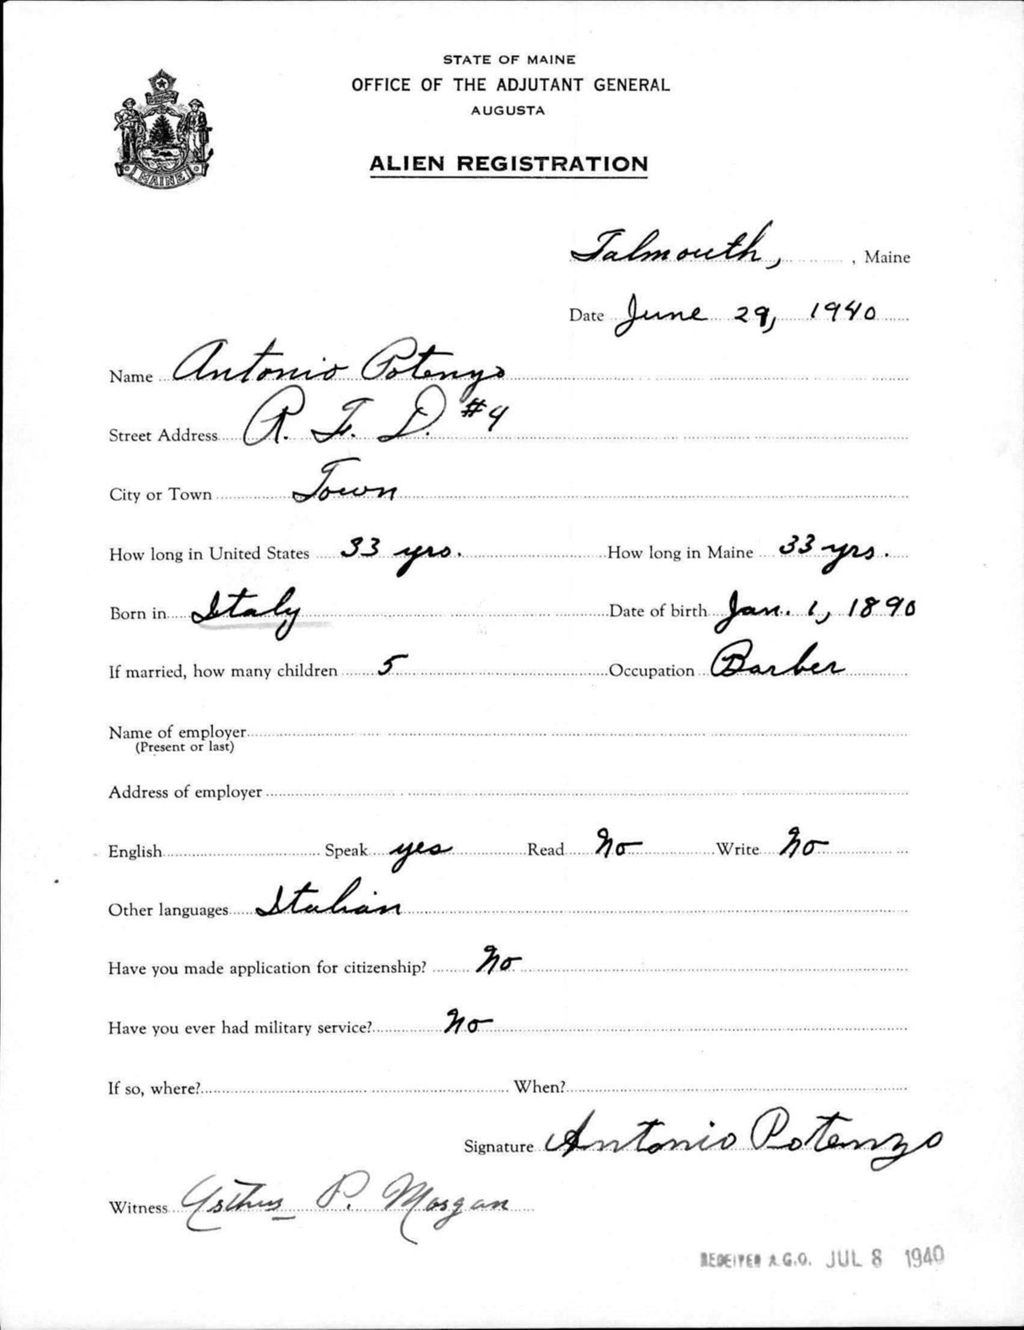 STATE OF MAINE
OFFICE OF THE ADJUTANT GENERAL
AUGUSTA
MAINE
ALIEN REGISTRATION
Falmouth, , Maine
Date June 29, 1940
Name Antonio Potenzo
Street Address R. F. D. #4
City or Town Town
How long in United States 33 yrs. How long in Maine 33 yrs.
Born in Italy Date of birth Jan. 1, 1890
If married, how many children 5 Occupation Barber
Name of employer
(Present or last)
Address of employer
English Speak yes Read No Write No
Other languages Italian
Have you made application for citizenship? No
Have you ever had military service? No
If so, where? When?
Signature Antonio Potenzo
Witness P. Morgan
RECEIVED A.G.O. JUL 8 1940